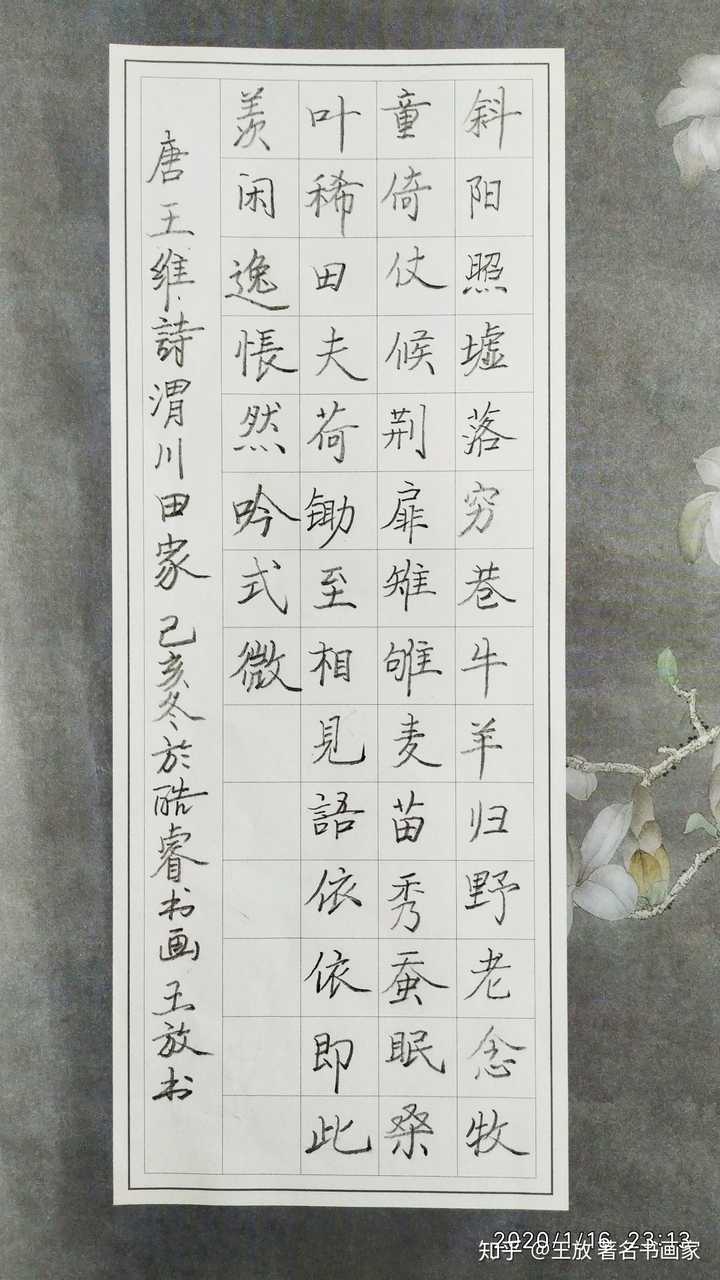 斜阳照墟落穷巷牛羊归野老念牧
童倚仗候荆扉雉雊麦苗秀蚕眠桑
叶稀田夫荷锄至相见語依依即此
羡闲逸怅然吟式微
唐王维詩渭川田家 己亥冬於皓睿书画王放书
2020/1/16 23:13
知乎 @王放 著名书画家